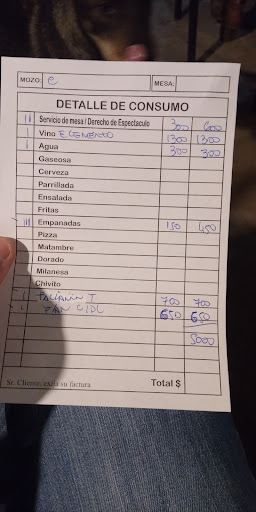 MOZO: e MESA:
DETALLE DE CONSUMO
II Servicio de mesa / Derecho de Espectaculo 300 600
I Vino ELEMENTO 1300 1300
I Agua 300 300
Gaseosa
Cerveza
Parrillada
Ensalada
Fritas
III Empanadas 150 450
Pizza
Matambre
Dorado
Milanesa
Chivito
I 700 700
I C/DL 650 650
5000
Sr. Cliente: exija su factura Total $